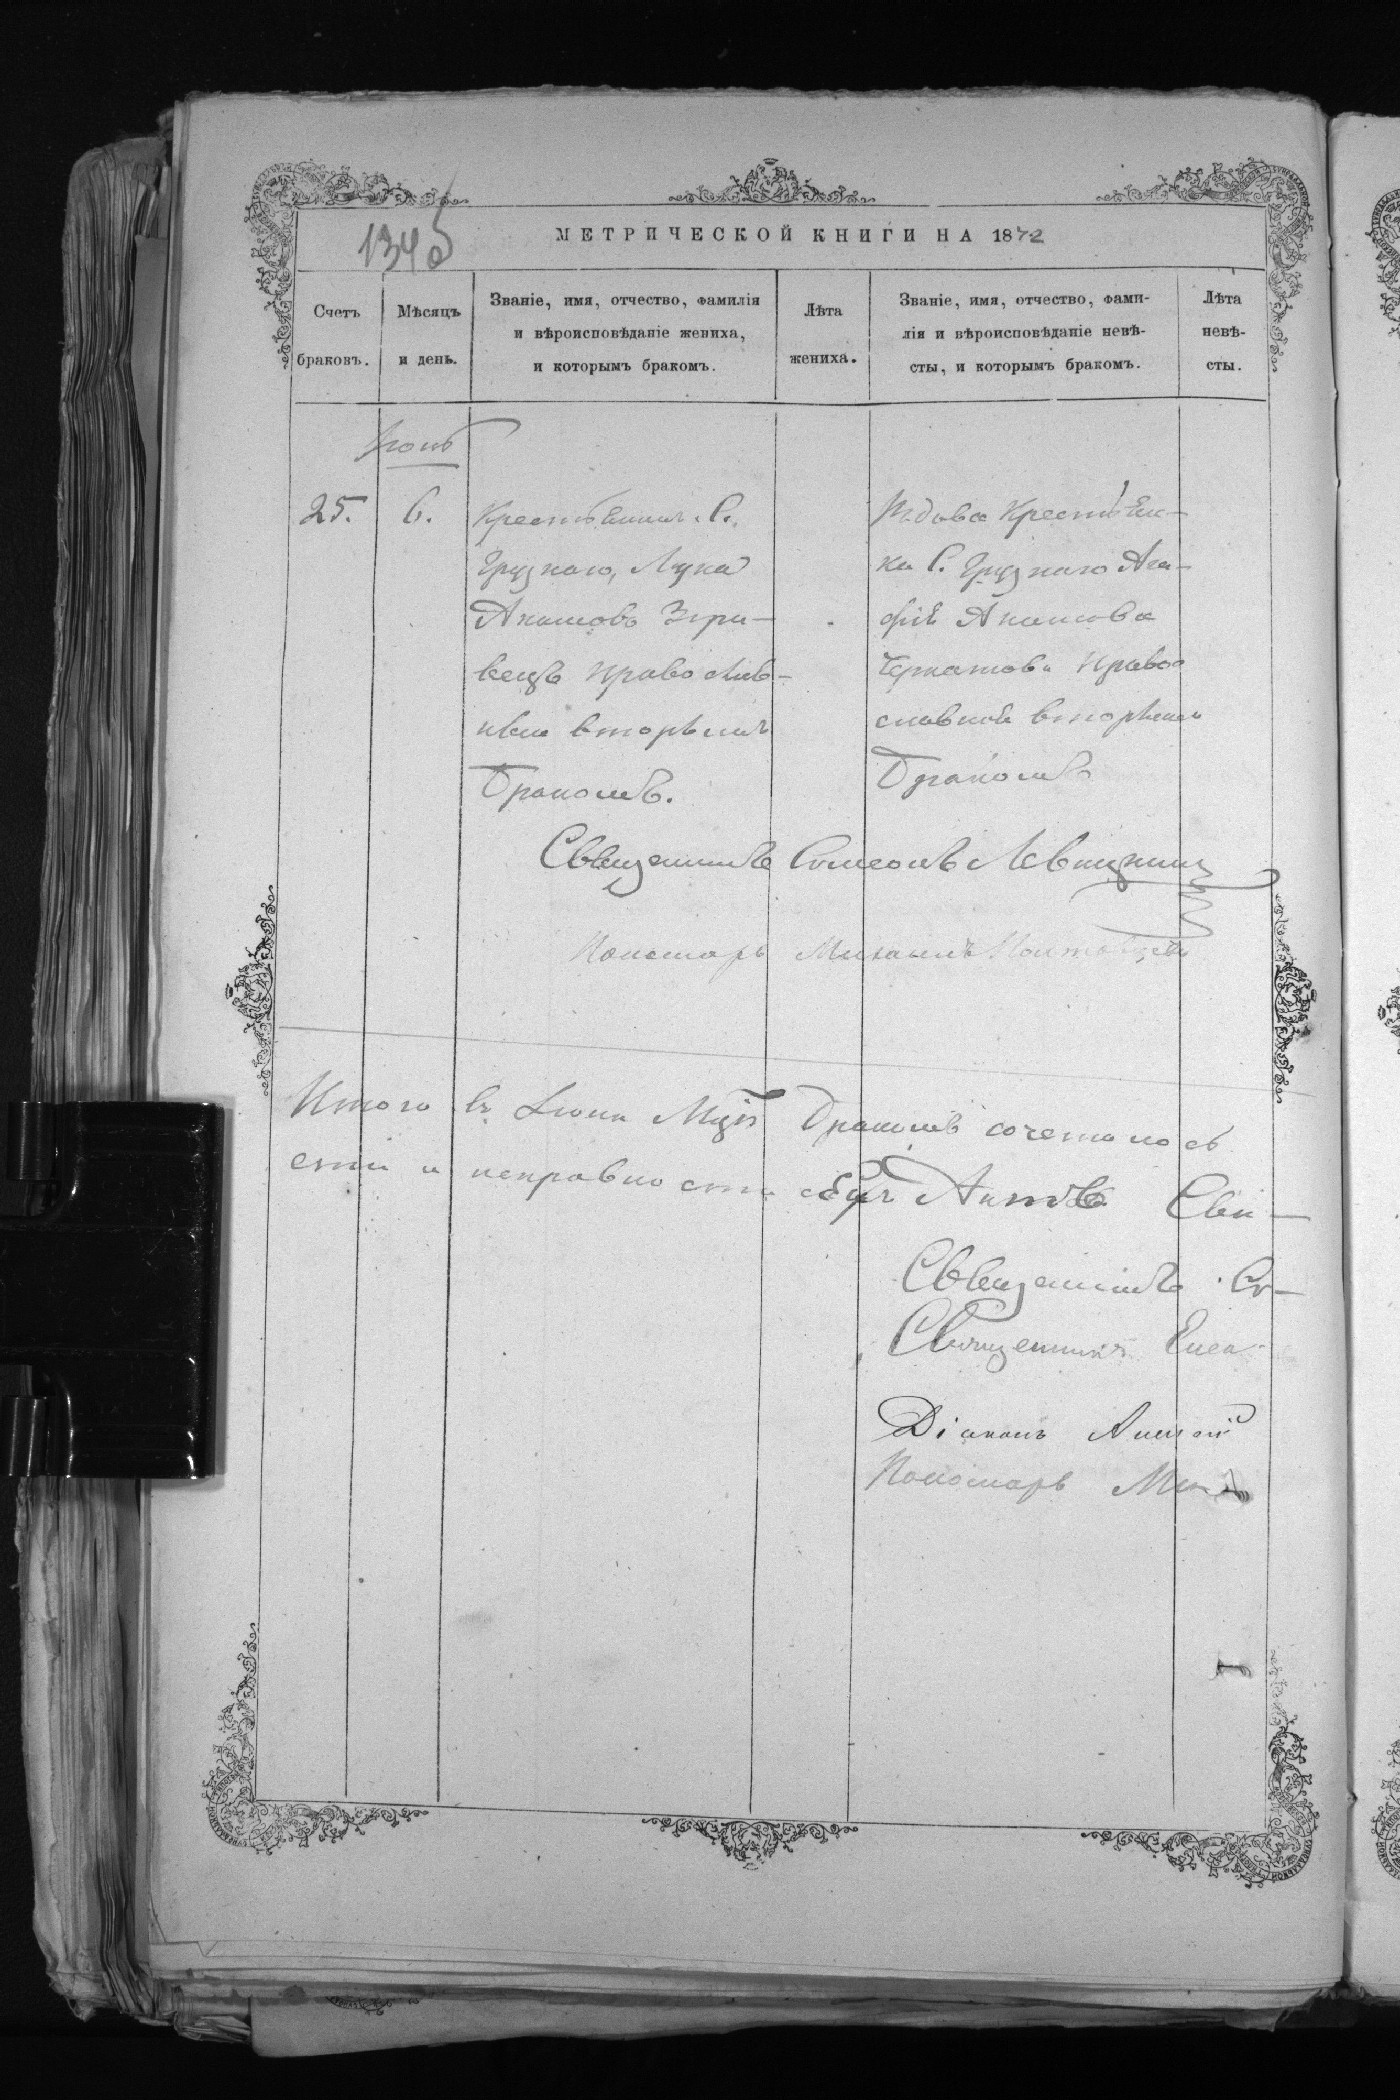 134об
МЕТРИЧЕСКОЙ КНИГИ НА 1872
Счетъ
браковъ.
Мѣсяцъ
и день.
Званіе, имя, отчество, фамилія
и вѣроисповѣданіе жениха,
и которымъ бракомъ.
Лѣта
жениха.
Званіе, имя, отчество, фами-
лія и вѣроисповѣданіе невѣ-
сты, и которымъ бракомъ.
Лѣта
невѣ-
сты.
25.
6.
Крестьянинъ С.
Грузкаго, Лука
Акимовъ
православ-
вторымъ
Бракомъ.
Вдова Крестьян-
ка С. Грузкаго Ага-
фія Акимова
право-
славной вторымъ
Бракомъ
Священникъ Симеонъ Левицкий
Пономарь Михаилъ
Итого въ Бракомъ сочеталось
сти и исправности сихъ Актовъ Сви-
Священникъ Си-
Священникъ
Діаконъ
Пономарь Ми